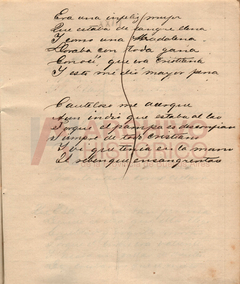 Era una infeliz mujer
Que estaba de sangre llena
Y como una Madalena
Lloraba con toda gana
Conocí que era Cristiana
Y esto me dió mayor pena

Cauteloso me acerqué
A un indio que estaba al lao
Porque el pampa es desconfiao
Siempre de todo Cristiano
Y ví que tenía en la mano
El rebenque ensangrentao
ARCHIVO